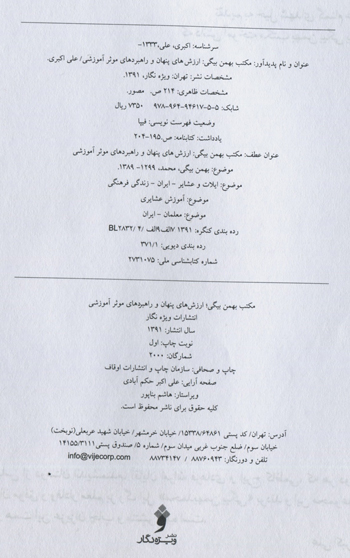 سرشناسه: اکبری، علی،۱۳۳۳-
عنوان و نام پدیدآور: مکتب بهمن بیگی: ارزش‌های پنهان و راهبردهای موثر آموزشی/ علی اکبری.
مشخصات نشر: تهران: ویژه نگار، ۱۳۹۱.
مشخصات ظاهری: ۲۱۴ ص. مصور.
شابک: ۵-۵-۹۴۶۱۷-۹۶۴-۹۷۸ ۷۳۵۰ ریال
وضعیت فهرست نویسی: فیپا
یادداشت: کتابنامه: ص.۱۹۵-۲۰۴
عنوان عطف: مکتب بهمن بیگی: ارزش های پنهان و راهبردهای موثر آموزشی
موضوع: بهمن بیگی، محمد، ۱۲۹۹- ۱۳۸۹.
موضوع: ایلات و عشایر - ایران - زندگی فرهنگی
موضوع: آموزش عشایری
موضوع: معلمان - ایران
رده بندی کنگره: ۱۳۹۱ ۷الف۹الف /۴ /BL۲۸۳۲
رده بندی دیویی: ۳۷۱/۱
شماره کتابشناسی ملی: ۲۷۳۱۰۷۵
مکتب بهمن بیگی؛ ارزش‌های پنهان و راهبردهای موثر آموزشی
انتشارات ویژه نگار
سال انتشار: ۱۳۹۱
نوبت چاپ: اول
شمارگان: ۲۰۰۰
چاپ و صحافی: سازمان چاپ و انتشارات اوقاف
صفحه آرایی: علی اکبر حکم آبادی
ویراستار: هاشم بناپور
کلیه حقوق برای ناشر محفوظ است.
آدرس: تهران/ کد پستی ۱۵۳۳۸/۶۴۸۶۱/ خیابان خرمشهر/ خیابان شهید عربعلی(نوبخت)
خیابان سوم/ ضلع جنوب غربی میدان سوم/ شماره ۵/ صندوق پستی۱۴۱۵۵/۳۱۱۱
تلفن و دورنگار: ۸۸۷۶۰۹۴۳ / ۸۸۷۳۴۱۴۷ info@vijecorp.com
نشر
ویژه نگار